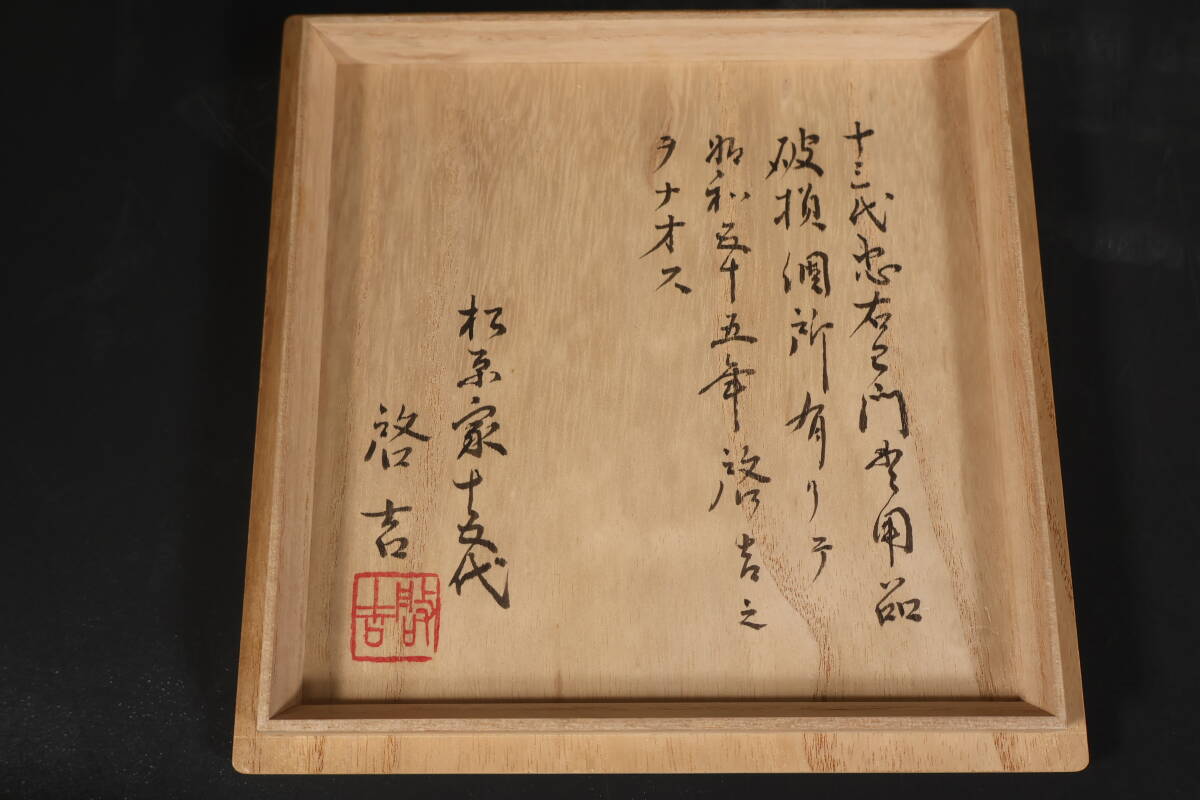 十三代忠右エ門愛用品
破損個所有リテ
昭和五十五年啓吉之
ヲナオス
松原家十五代
啓吉
啓吉